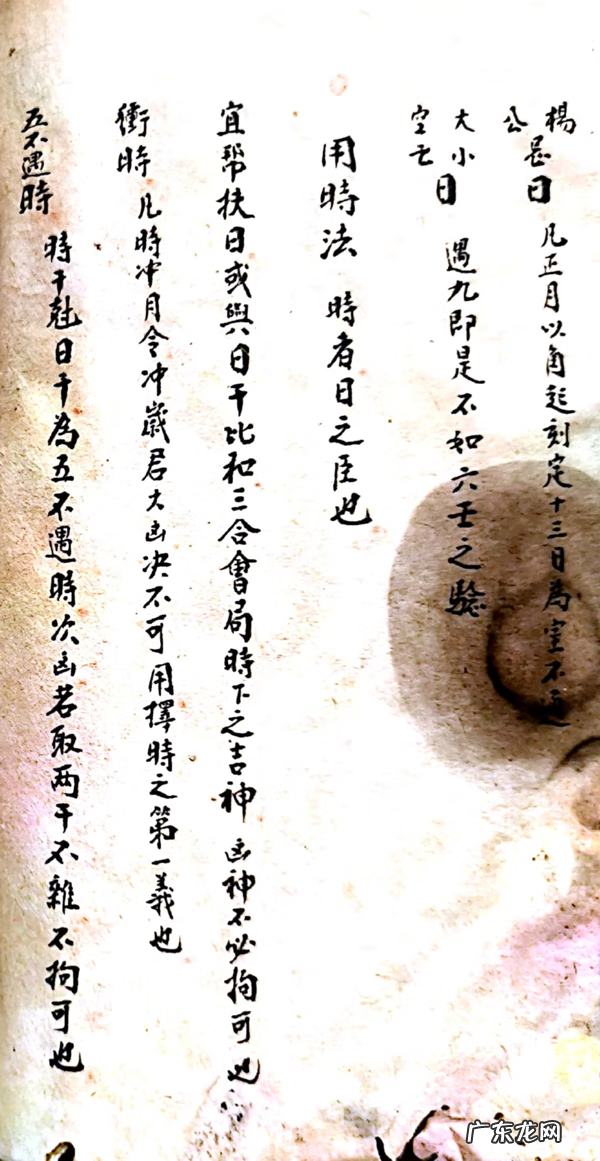 楊公忌日 凡正月以角起刻定十三日為室不通
大小空亡日 遇九即是不如六壬之驗
用時法 時者日之臣也
宜幇扶日或與日干比和三合會局時下之吉神凶神不必拘可也
衝時 凡時冲月令冲歲君大凶决不可用擇時之第一義也
五不遇時
時干尅日干為五不遇時次凶若取两干不雜不拘可也
广东龙网